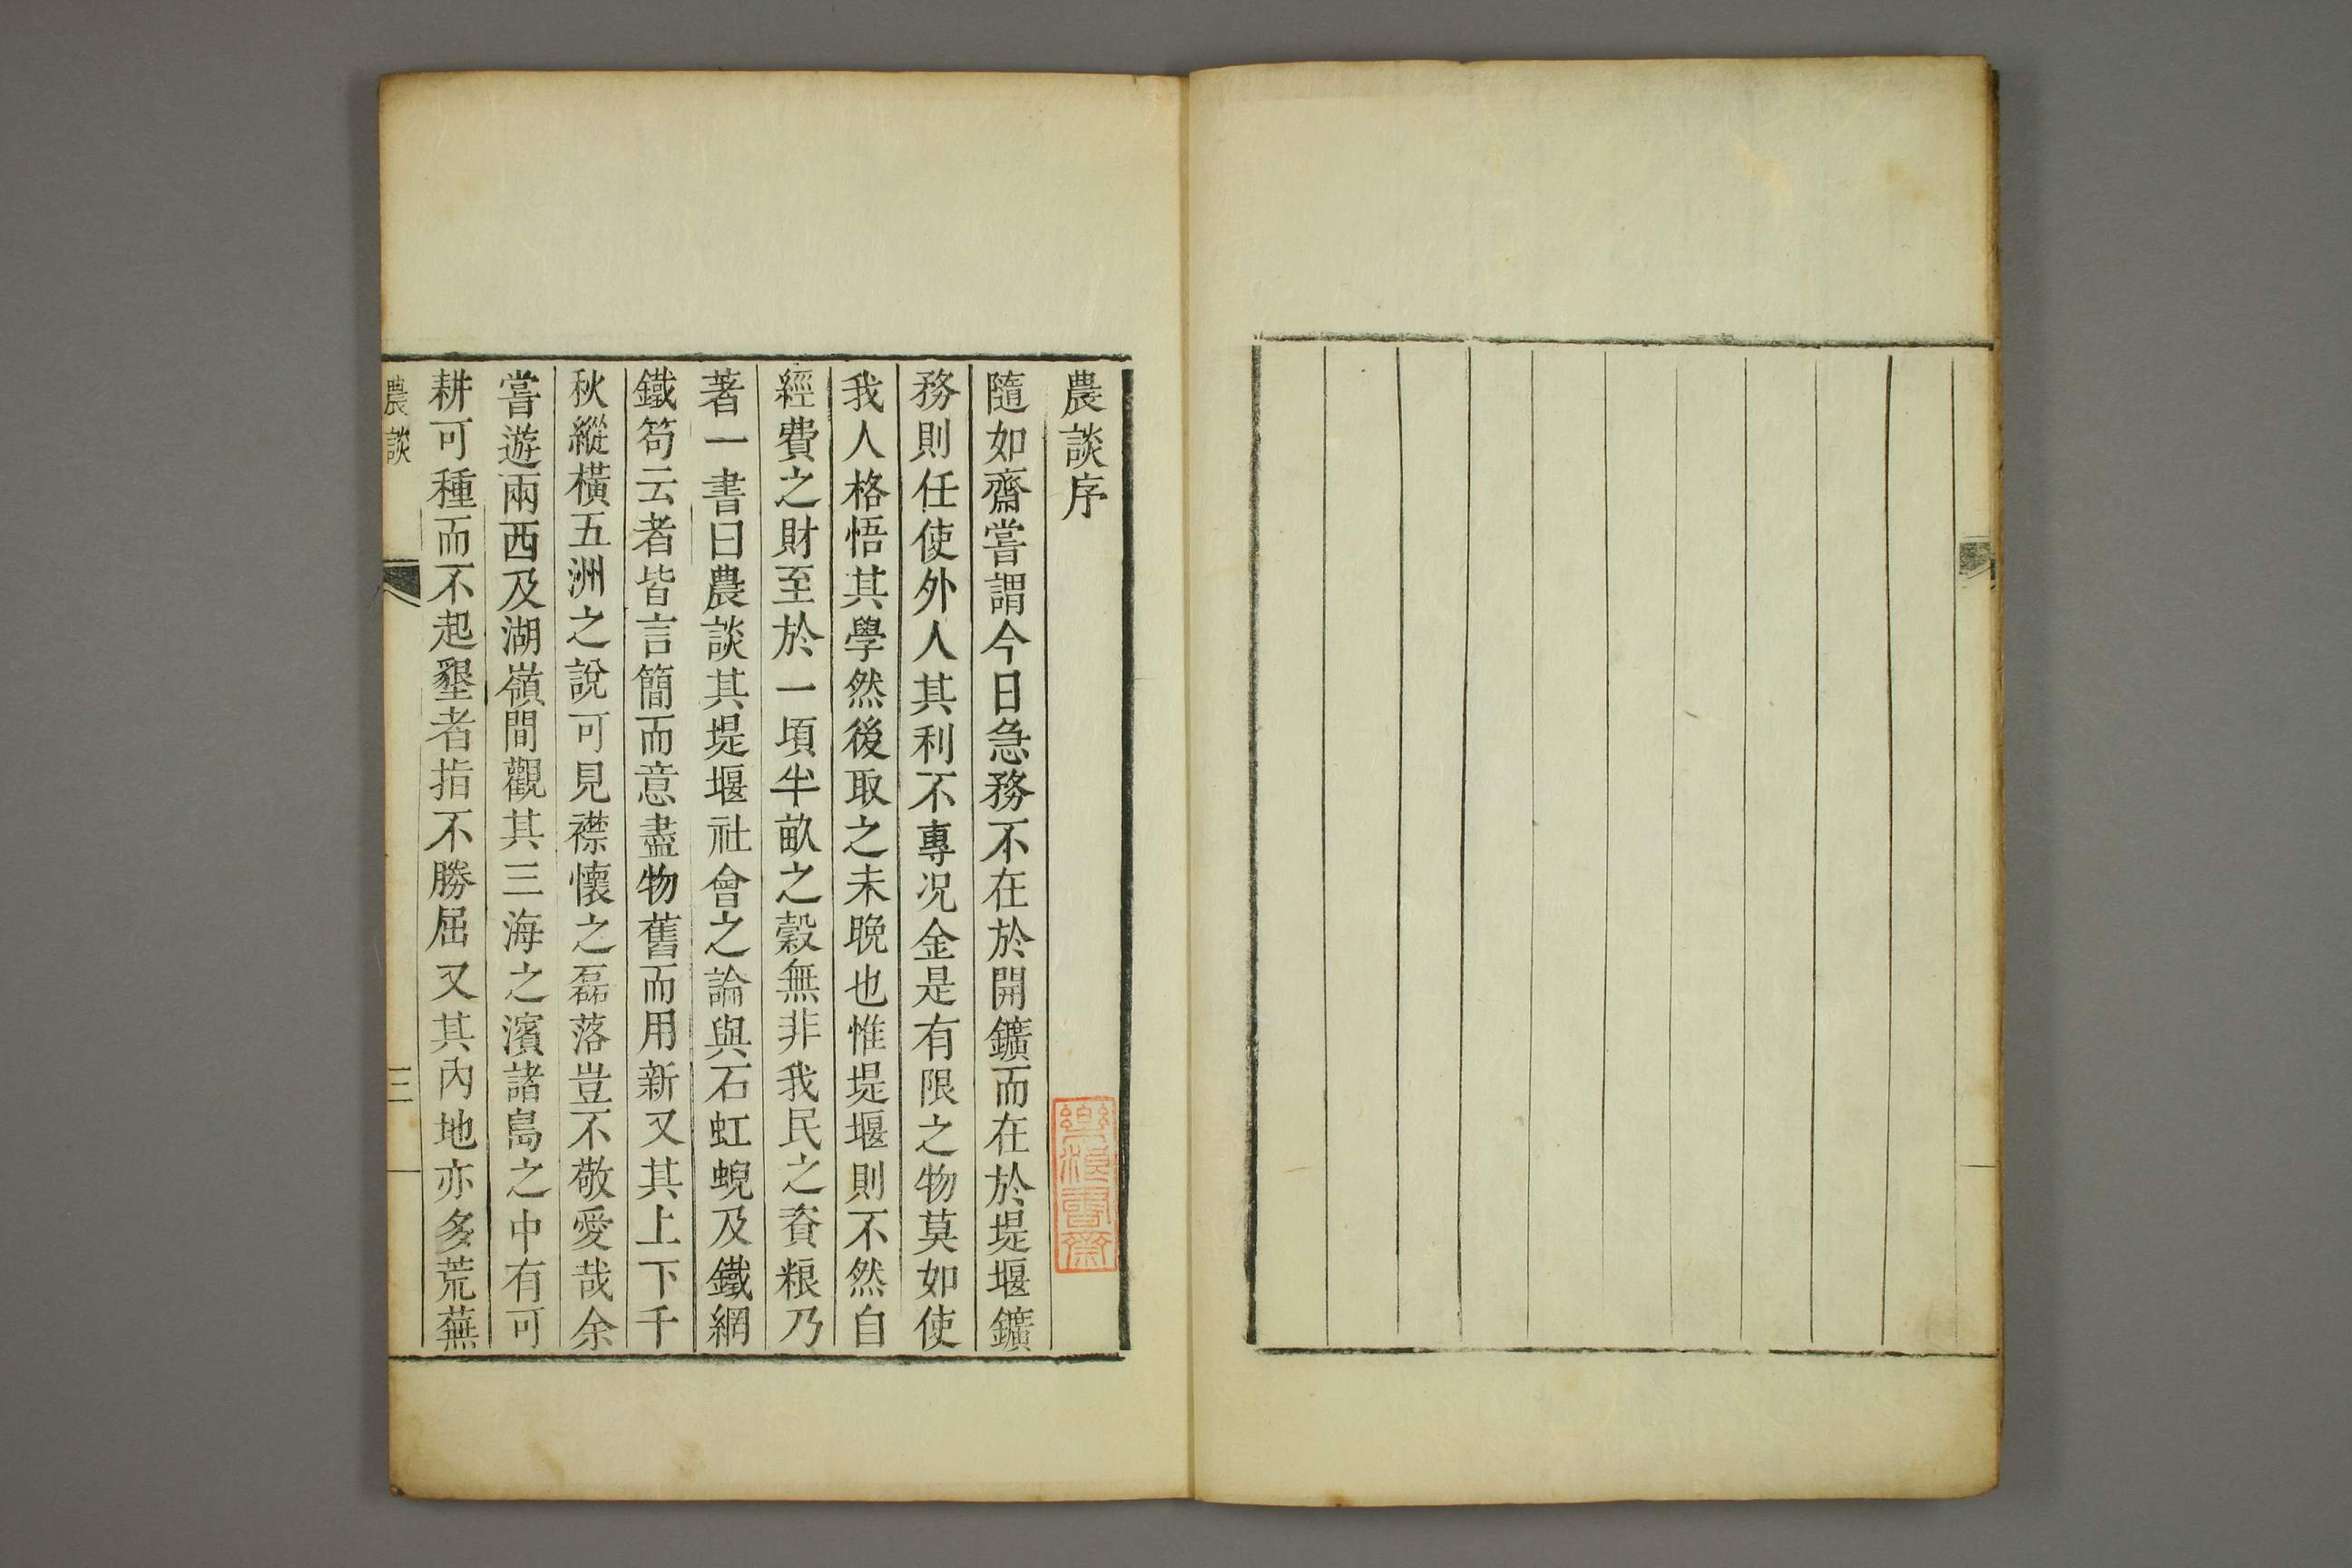 農談序
隨如齋嘗謂今日急務不在於開鑛而在於堤堰鑛
務則任使外人其利不專况金是有限之物莫如使
我人格悟其學然後取之未晩也惟堤堰則不然自
經費之財至於一頃半畝之穀無非我民之資粮乃
著一書曰農談其堤堰社會之論與石虹蜺及鐵網
鐵笱云者皆言簡而意盡物舊而用新又其上下千
秋縱橫五洲之說可見襟懷之磊落豈不敬愛哉余
嘗遊兩西及湖嶺間觀其三海之濱諸島之中有可
耕可種而不起墾者指不勝屈又其內地亦多荒蕪
農談
三